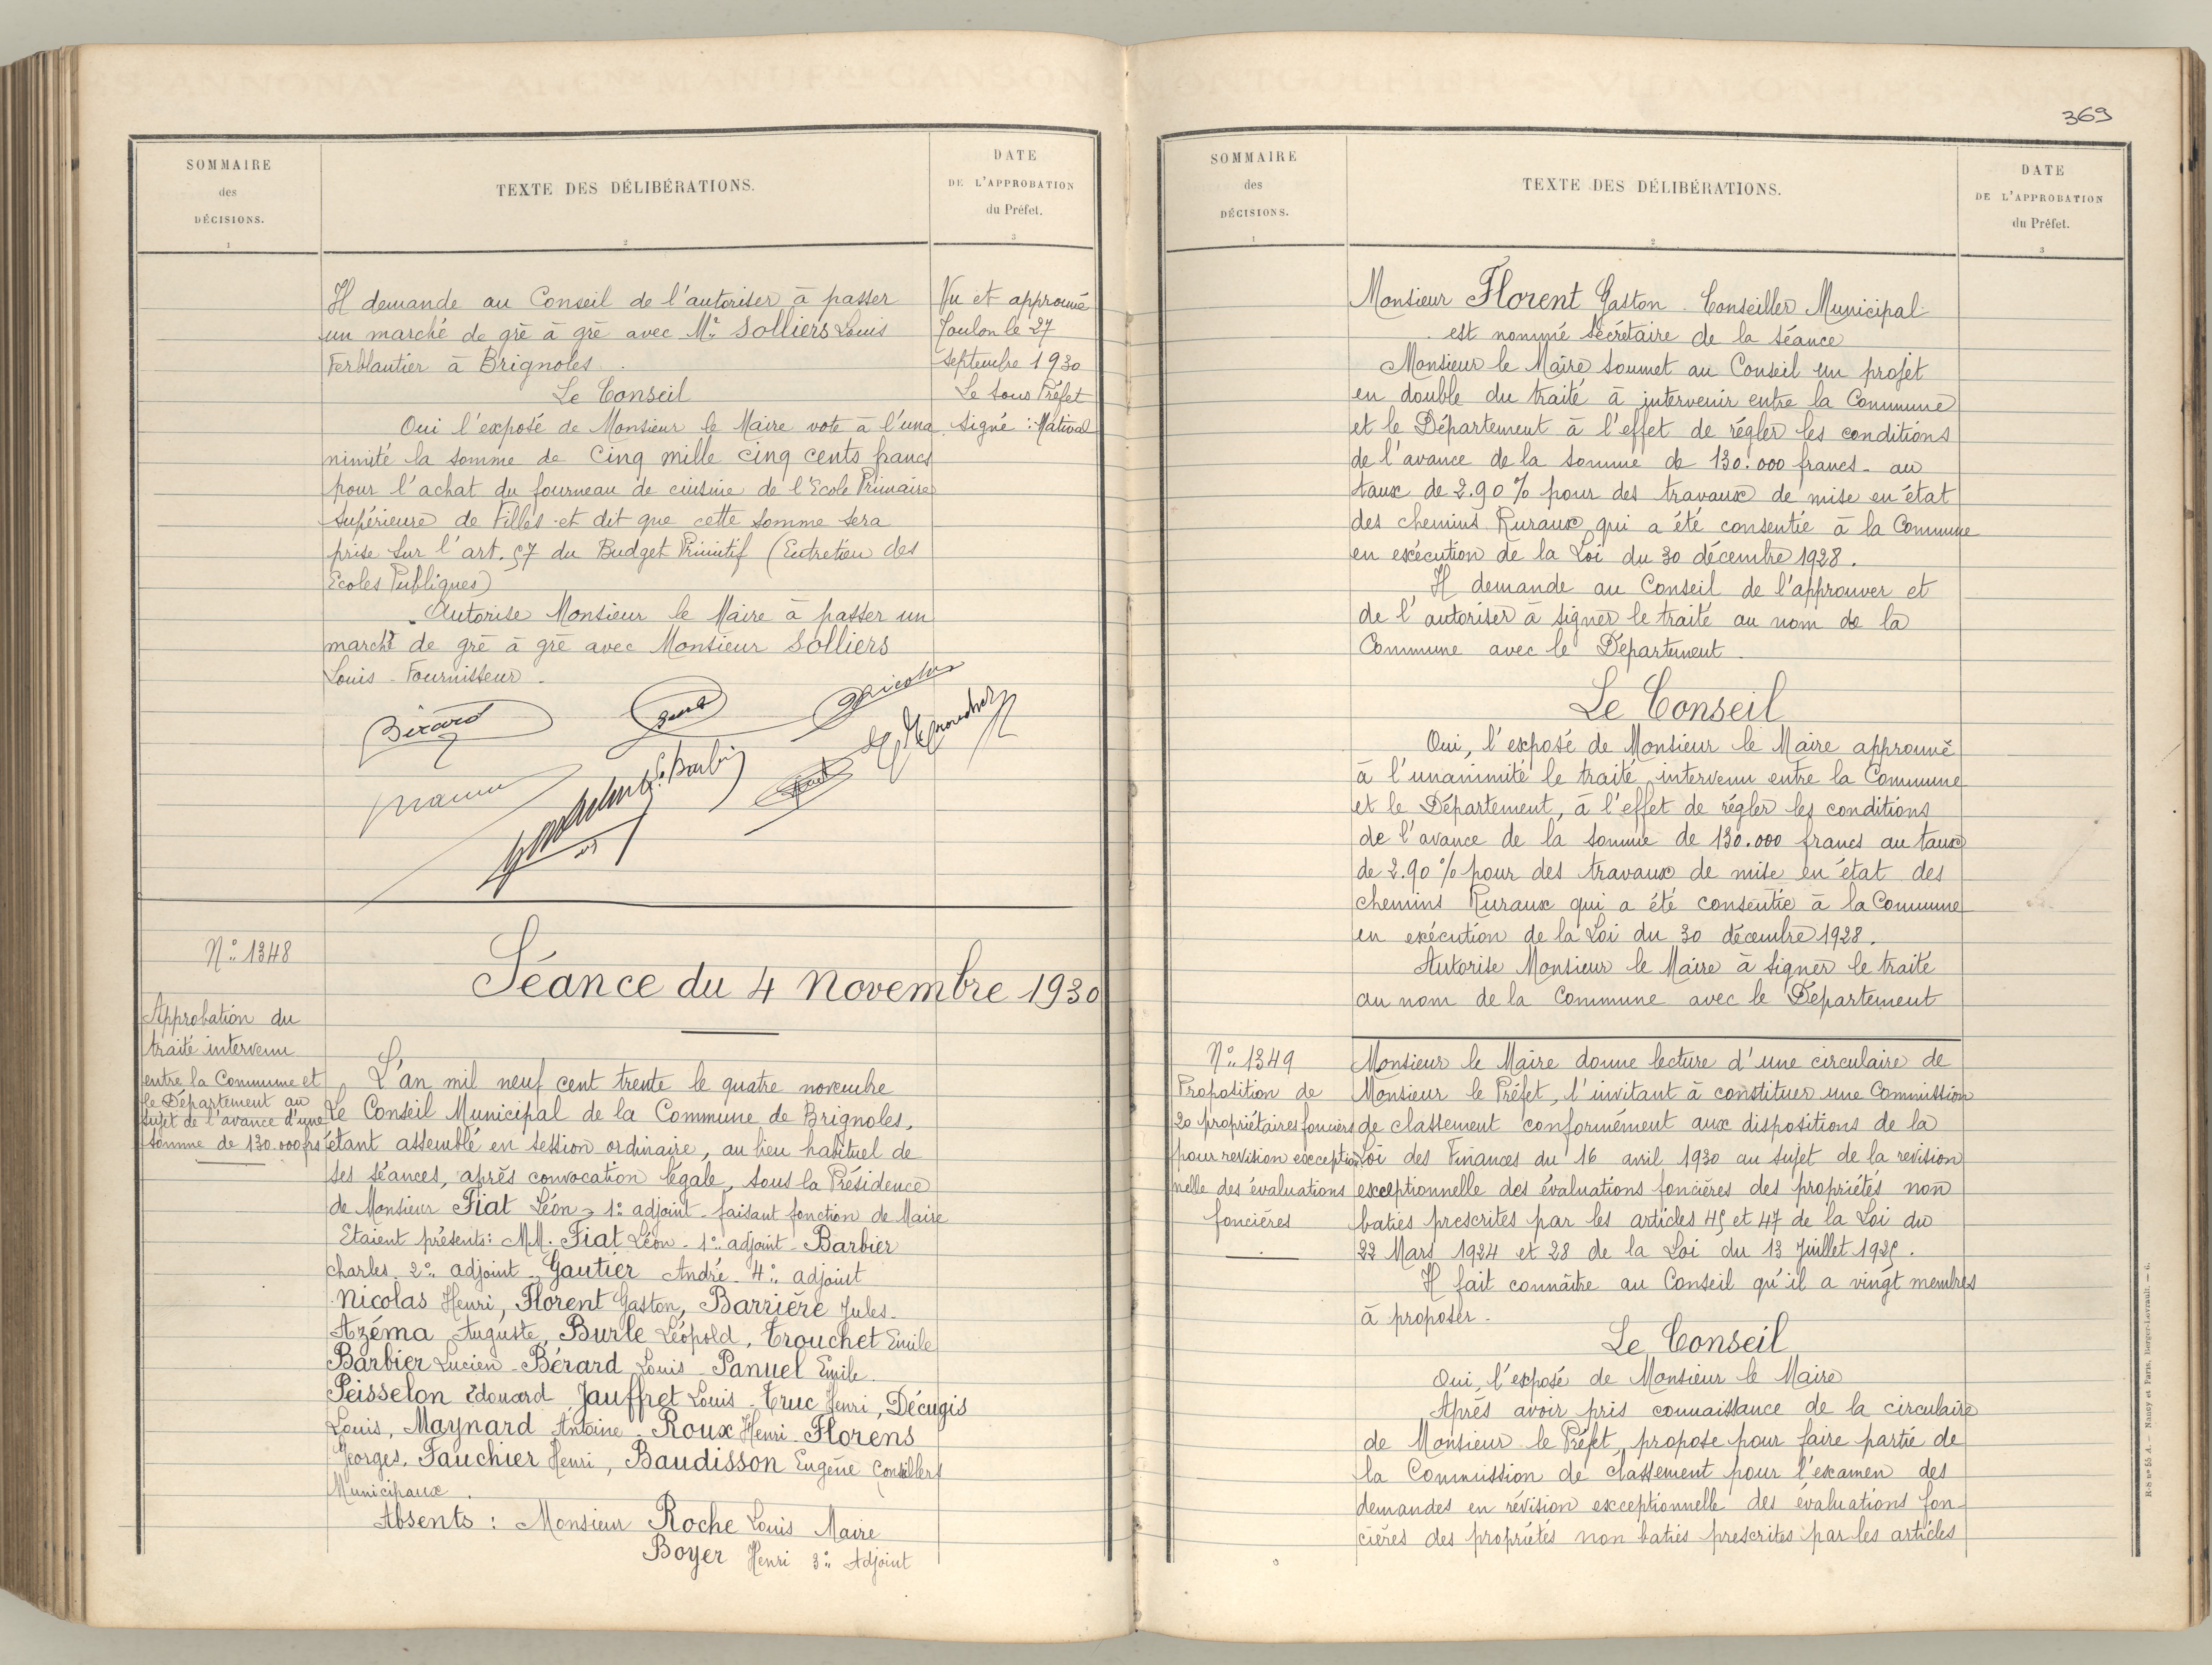 SOMMAIRE
des
DÉCISIONS.
1
TEXTE DES DÉLIBÉRATIONS.
2
DATE
DE L'APPROBATION
du Préfet.
3
Il demande au Conseil de l'autoriser à passer
un marché de gré à gré avec Mr Solliers Louis
Ferblantier à Brignoles.
Le Conseil
Oui l'exposé de Monsieur le Maire vote à l'una
nimité la somme de Cinq mille cinq cents francs
pour l'achat du fourneau de cuisine de l'Ecole Primaire
Supérieure de Filles et dit que cette somme sera
prise sur l'art. 57 du Budget Primitif (Entretien des
Ecoles Publiques)
Autorise Monsieur le Maire à passer un
marché de gré à gré avec Monsieur Solliers
Louis - Fournisseur.
Vu et approuvé
Toulon le 27
septembre 1930
Le sous Préfet
Signé : Mativat
Bérard
Nicolas
Barbier
N° 1348
Approbation du
traité intervenu
entre la Commune et
le Département au
sujet de l'avance d'une
somme de 130.000 frs
Séance du 4 Novembre 1930
L'an mil neuf cent trente le quatre novembre
Le Conseil Municipal de la Commune de Brignoles,
étant assemblé en session ordinaire, au lieu habituel de
ses séances, après convocation légale, sous la Présidence
de Monsieur Fiat Léon, 1° adjoint - faisant fonction de Maire
Etaient présents : MM. Fiat Léon - 1° adjoint - Barbier
charles 2° adjoint - Gautier André - 4° adjoint
Nicolas Henri, Florent Gaston, Barrière Jules -
Azéma Auguste, Burle Léopold, Trouchet Emile
Barbier Lucien - Bérard Louis - Panuel Emile.
Peisselon Edouard Jauffret Louis - Truc Henri, Décugis
Louis, Maynard Antoine - Roux Henri - Florens
Georges, Fauchier Henri, Baudisson Eugène Conseillers
Municipaux.
Absents : Monsieur Roche Louis Maire
Boyer Henri 3° Adjoint
369
SOMMAIRE
des
DÉCISIONS.
1
TEXTE DES DÉLIBÉRATIONS.
2
DATE
DE L'APPROBATION
du Préfet.
3
Monsieur Florent Gaston. Conseiller Municipal
est nommé Secrétaire de la séance
Monsieur le Maire soumet au Conseil un projet
en double du traité à intervenir entre la Commune
et le Département à l'effet de régler les conditions
de l'avance de la somme de 130.000 francs - au
taux de 2.90 % pour des travaux de mise en état
des chemins Ruraux qui a été consentie à la Commune
en exécution de la Loi du 30 décembre 1928.
Il demande au Conseil de l'approuver et
de l'autoriser à signer le traité au nom de la
Commune avec le Département.
Le Conseil
Oui, l'exposé de Monsieur le Maire approuvé
à l'unanimité le traité intervenu entre la Commune
et le Département, à l'effet de régler les conditions
de l'avance de la somme de 130.000 francs au taux
de 2.90 % pour des travaux de mise en état des
chemins Ruraux qui a été consentie à la Commune
en exécution de la Loi du 30 décembre 1928.
Autorise Monsieur le Maire à signer le traité
au nom de la Commune avec le Département
N° 1349
Proposition de
20 propriétaires fonciers
pour revision exception
nelle des évaluations
foncières
Monsieur le Maire donne lecture d'une circulaire de
Monsieur le Préfet, l'invitant à constituer une Commission
de classement conformément aux dispositions de la
Loi des Finances du 16 avril 1930 au sujet de la revision
exceptionnelle des évaluations foncières des propriétés non
baties prescrites par les articles 45 et 47 de la Loi du
22 Mars 1924 et 28 de la Loi du 13 Juillet 1925.
Il fait connaître au Conseil qu'il a vingt membres
à proposer.
Le Conseil
Oui, l'exposé de Monsieur le Maire
Après avoir pris connaissance de la circulaire
de Monsieur le Préfet, propose pour faire partie de
la Commission de classement pour l'examen des
demandes en révision exceptionnelle des évaluations fon-
cières des propriétés non baties prescrites par les articles
R-S n° 55 A. — Nancy et Paris, Berger-Levrault. — 6.